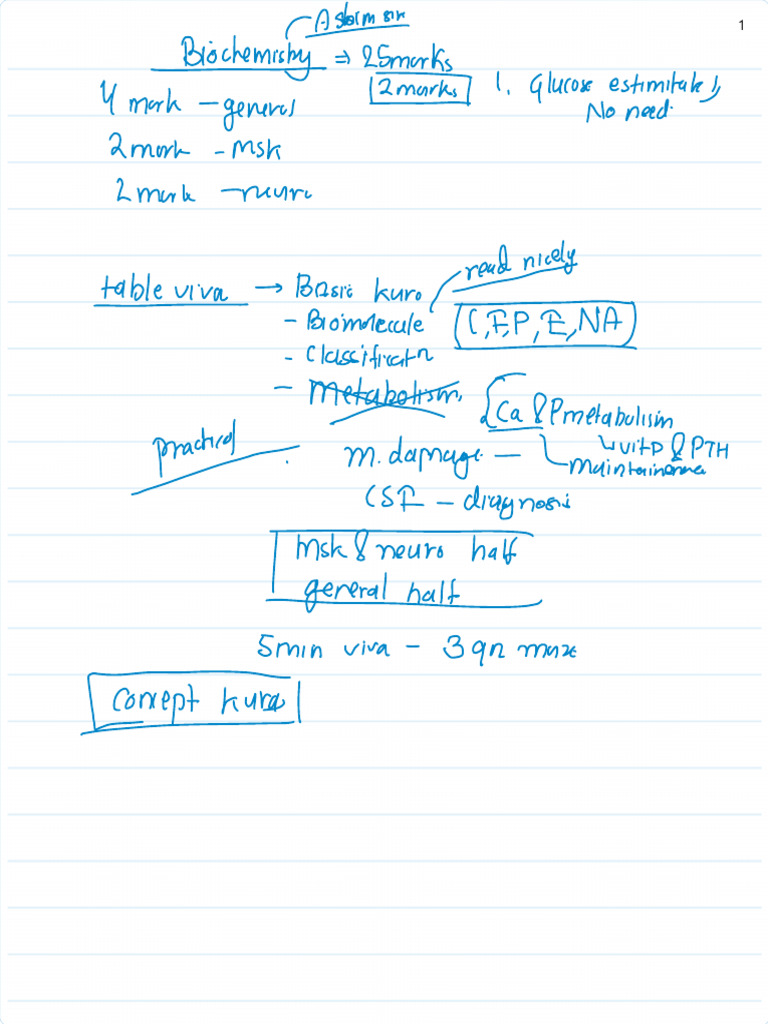 1
Biochemistry ⇒ 25marks
2marks 1. Glucose
No need.
4 mark - general
2 mark - msk
2 mark - neuro
read nicely
table viva → Basic kuro
- Biomolecule (C,F,P,E,NA)
- Classificatn
- Metabolism
Ca & P metabolism
↳ vit D & PTH
practical
m. damage -
CSF - diagnosis
msk & neuro half
general half
5min viva - 3 qn max
concept kura